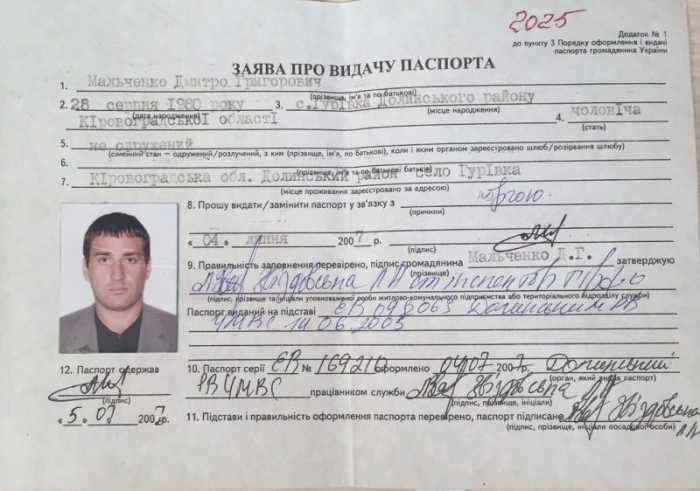 2025
Додаток № 1
до пункту 3 Порядку оформлення і видачі
паспорта громадянина України
ЗАЯВА ПРО ВИДАЧУ ПАСПОРТА
1. Мальченко Дмитро Григорович
(прізвище, ім'я та по батькові)
2. 28 серпня 1980 року 3. с.Гурівка Долинського району
(дата народження) (місце народження)
Кіровоградської області 4. чоловіча
(стать)
5. не одружений
(сімейний стан — одружений/розлучений, з ким (прізвище, ім'я, по батькові), коли і яким органом зареєстровано шлюб/розірвання шлюбу)
6.
(прізвище, ім'я та по батькові батьків)
7. Кіровоградська обл. Долинський район село Гурівка
(місце проживання зареєстровано за адресою)
8. Прошу видати/замінити паспорт у зв'язку з втратою
(причини)
« 04 » липня 2007 р.
(підпис)
9. Правильність заповнення перевірено, підпис громадянина Мальченко Д.Г. затверджую
(прізвище)
ст інспектор
(підпис, прізвище та ініціали уповноваженої особи житлово-комунального підприємства або територіального підрозділу служби)
Паспорт виданий на підставі ЕВ 098063 Долинським РВ
УМВС 19.06.2003
12. Паспорт одержав
(підпис)
« 5 . 07 2007 р.
10. Паспорт серії ЕВ № 169210 оформлено 04 07 2007 р. Долинський
(орган, який видав паспорт)
РВ УМВС працівником служби
(підпис, прізвище, ініціали)
11. Підстави і правильність оформлення паспорта перевірено, паспорт підписано
(підпис, прізвище, ініціали посадової особи)